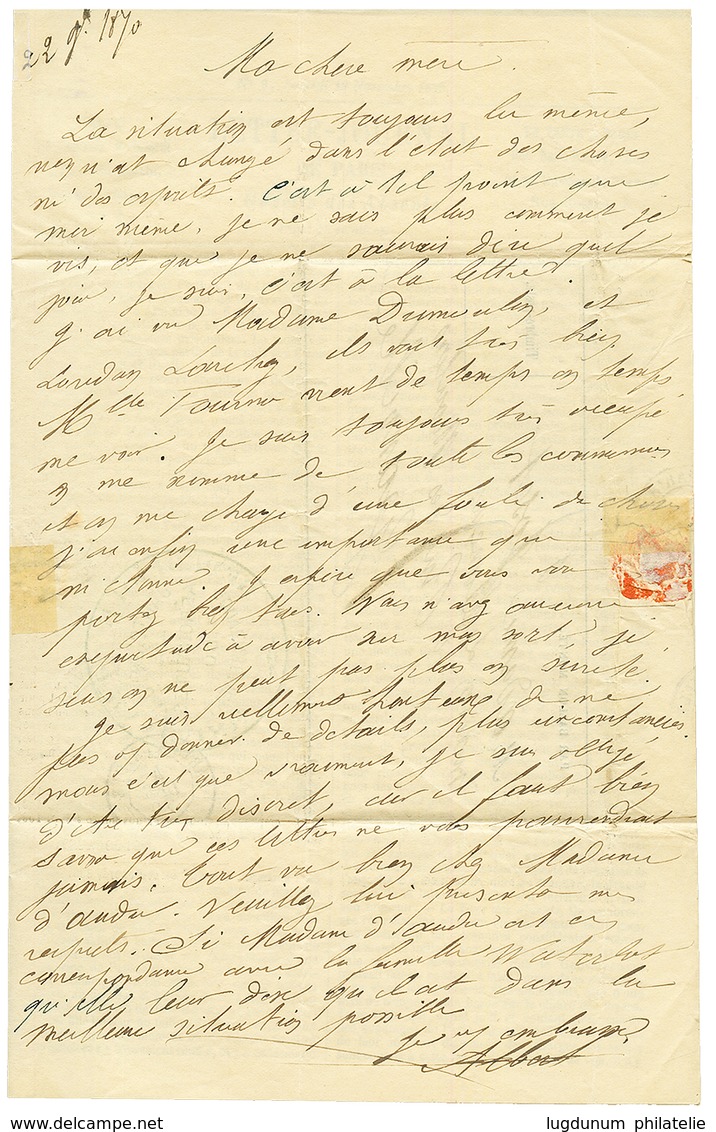 22 9bre 1870
Ma chere mere.
La situation est toujours la même,
rien n'est changé dans l'état des choses
ni des esprits. C'est à tel point que
moi même, je ne sais plus comment je
vis, et que je ne saurais dire quel
jour, je suis, c'est à la lettre.
J'ai vu Madame Dumoulin, et
Loredan Larchey, ils vont très bien,
Mlle Tournu vient de temps en temps
me voir. Je suis toujours très occupé
on me nomme de toute les commissions
et on me charge d'une foule de choses
j'ai enfin une importance qui
m'étonne. J'espère que vous vous
portez tres bien. Vous n'avez aucune
inquietude à avoir sur mon sort, je
suis on ne peut pas plus en sureté.
Je suis reellement honteux de ne
pas vs donner de détails, plus circonstanciés
mais c'est que vraiment, je suis obligé
d'être très discret, car il faut bien
savoir que ces lettres ne vous parviendrait
jamais. Tout va bien chez Madame
d'Audu. Veuillez lui presenter mes
respects. Si Madame d'Audu est en
correspondance avec la famille Waterlot
qu'elle leur dise qu'il est dans la
meilleure situation possible
Je vs embrasse,
Albert
lugdunum philatelie
www.delcampe.net